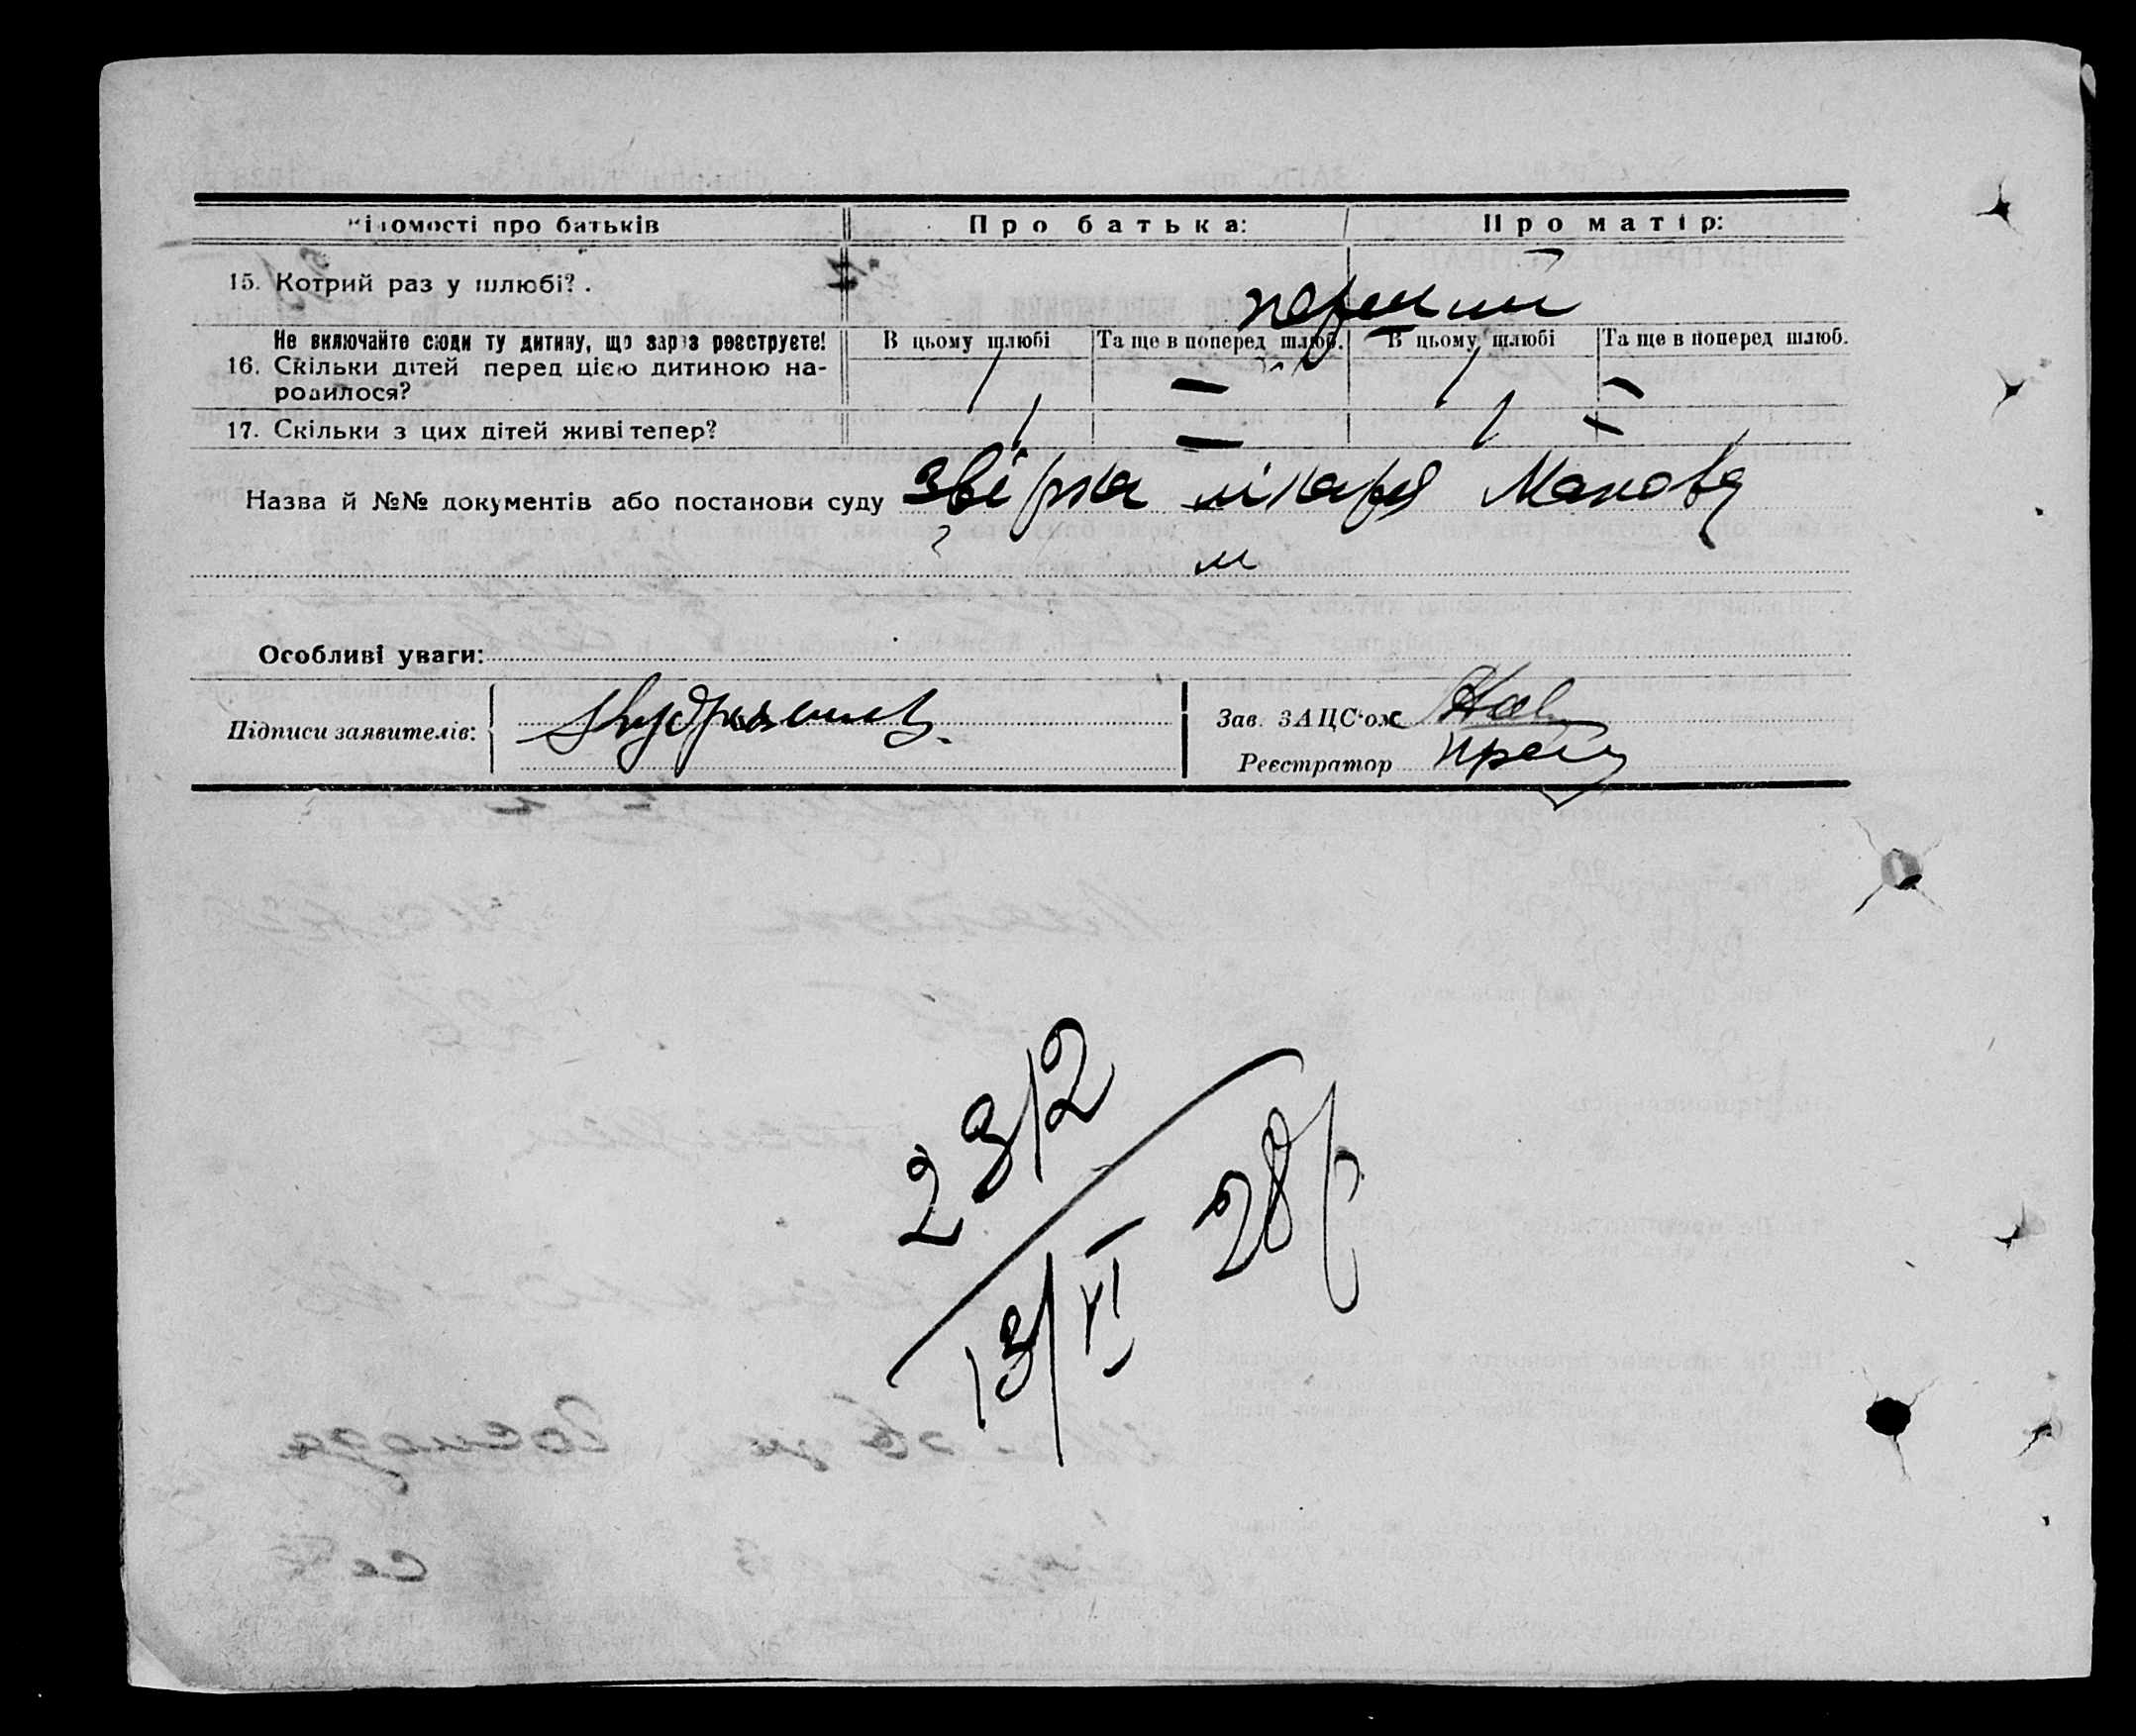 Відомості про батьків Про батька: Про матір:
15. Котрий раз у шлюбі?. перший
Не включайте сюди ту дитину, що зараз реєструєте! В цьому шлюбі Та ще в поперед шлюб. В цьому шлюбі Та ще в поперед шлюб.
16. Скільки дітей перед цією дитиною на-
родилося? 1 — 1 —
17. Скільки з цих дітей живі тепер? 1 — 1 —
Назва й №№ документів або постанови суду лікаря
Особливі уваги:
Підписи заявителів:
Зав. ЗАЦС'ом
Реєстратор
2312
13/VI 28р